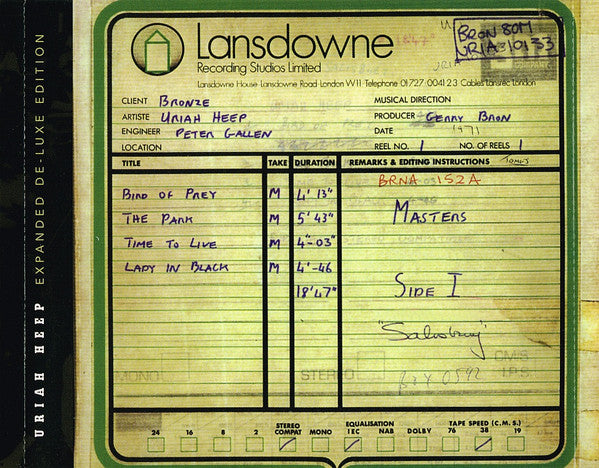 URIAH HEEP EXPANDED DE-LUXE EDITION
Lansdowne
Recording Studios Limited
Lansdowne House Lansdowne Road London W11 Telephone 01 727 0041 2 3 Cables Lansrec London
BRON 80M
CLIENT BRONZE
MUSICAL DIRECTION
ARTISTE URIAH HEEP
PRODUCER GERRY BRON
ENGINEER PETER GALLEN
DATE 1971
LOCATION
REEL NO. 1 NO. OF REELS 1
TITLE TAKE DURATION REMARKS & EDITING INSTRUCTIONS
BRNA 152A
BIRD OF PREY M 4' 13"
MASTERS
THE PARK M 5' 43"
TIME TO LIVE M 4"-03"
LADY IN BLACK M 4'-46
18'47" SIDE I
"Salisbury"
MONO STEREO CM/S
I.P.S.
24 16 8 2 STEREO COMPAT MONO EQUALISATION IEC NAB DOLBY TAPE SPEED (C.M.S.) 76 38 19